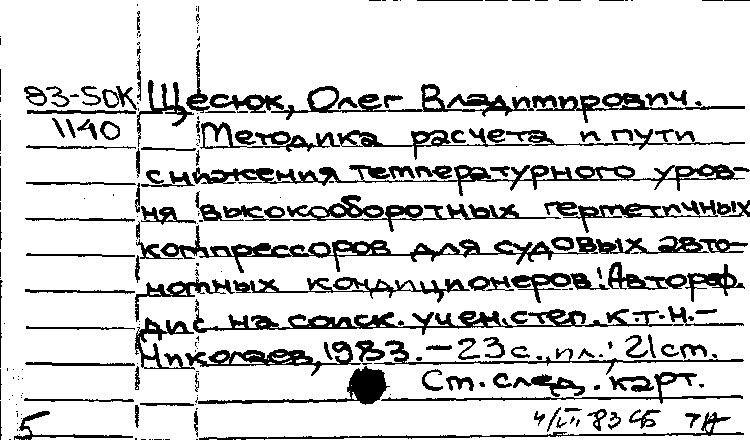 83-5ОК Щесюк, Олег Владимирович.
1140 Методика расчета и пути
снижения температурного уров-
ня высокооборотных герметичных
компрессоров для судовых авто-
номных кондиционеров: Автореф.
дис. на соиск. учен. степ. к.т.н.-
Николаев, 1983. - 23 с., ил.; 21 см.
См. след. карт.
5